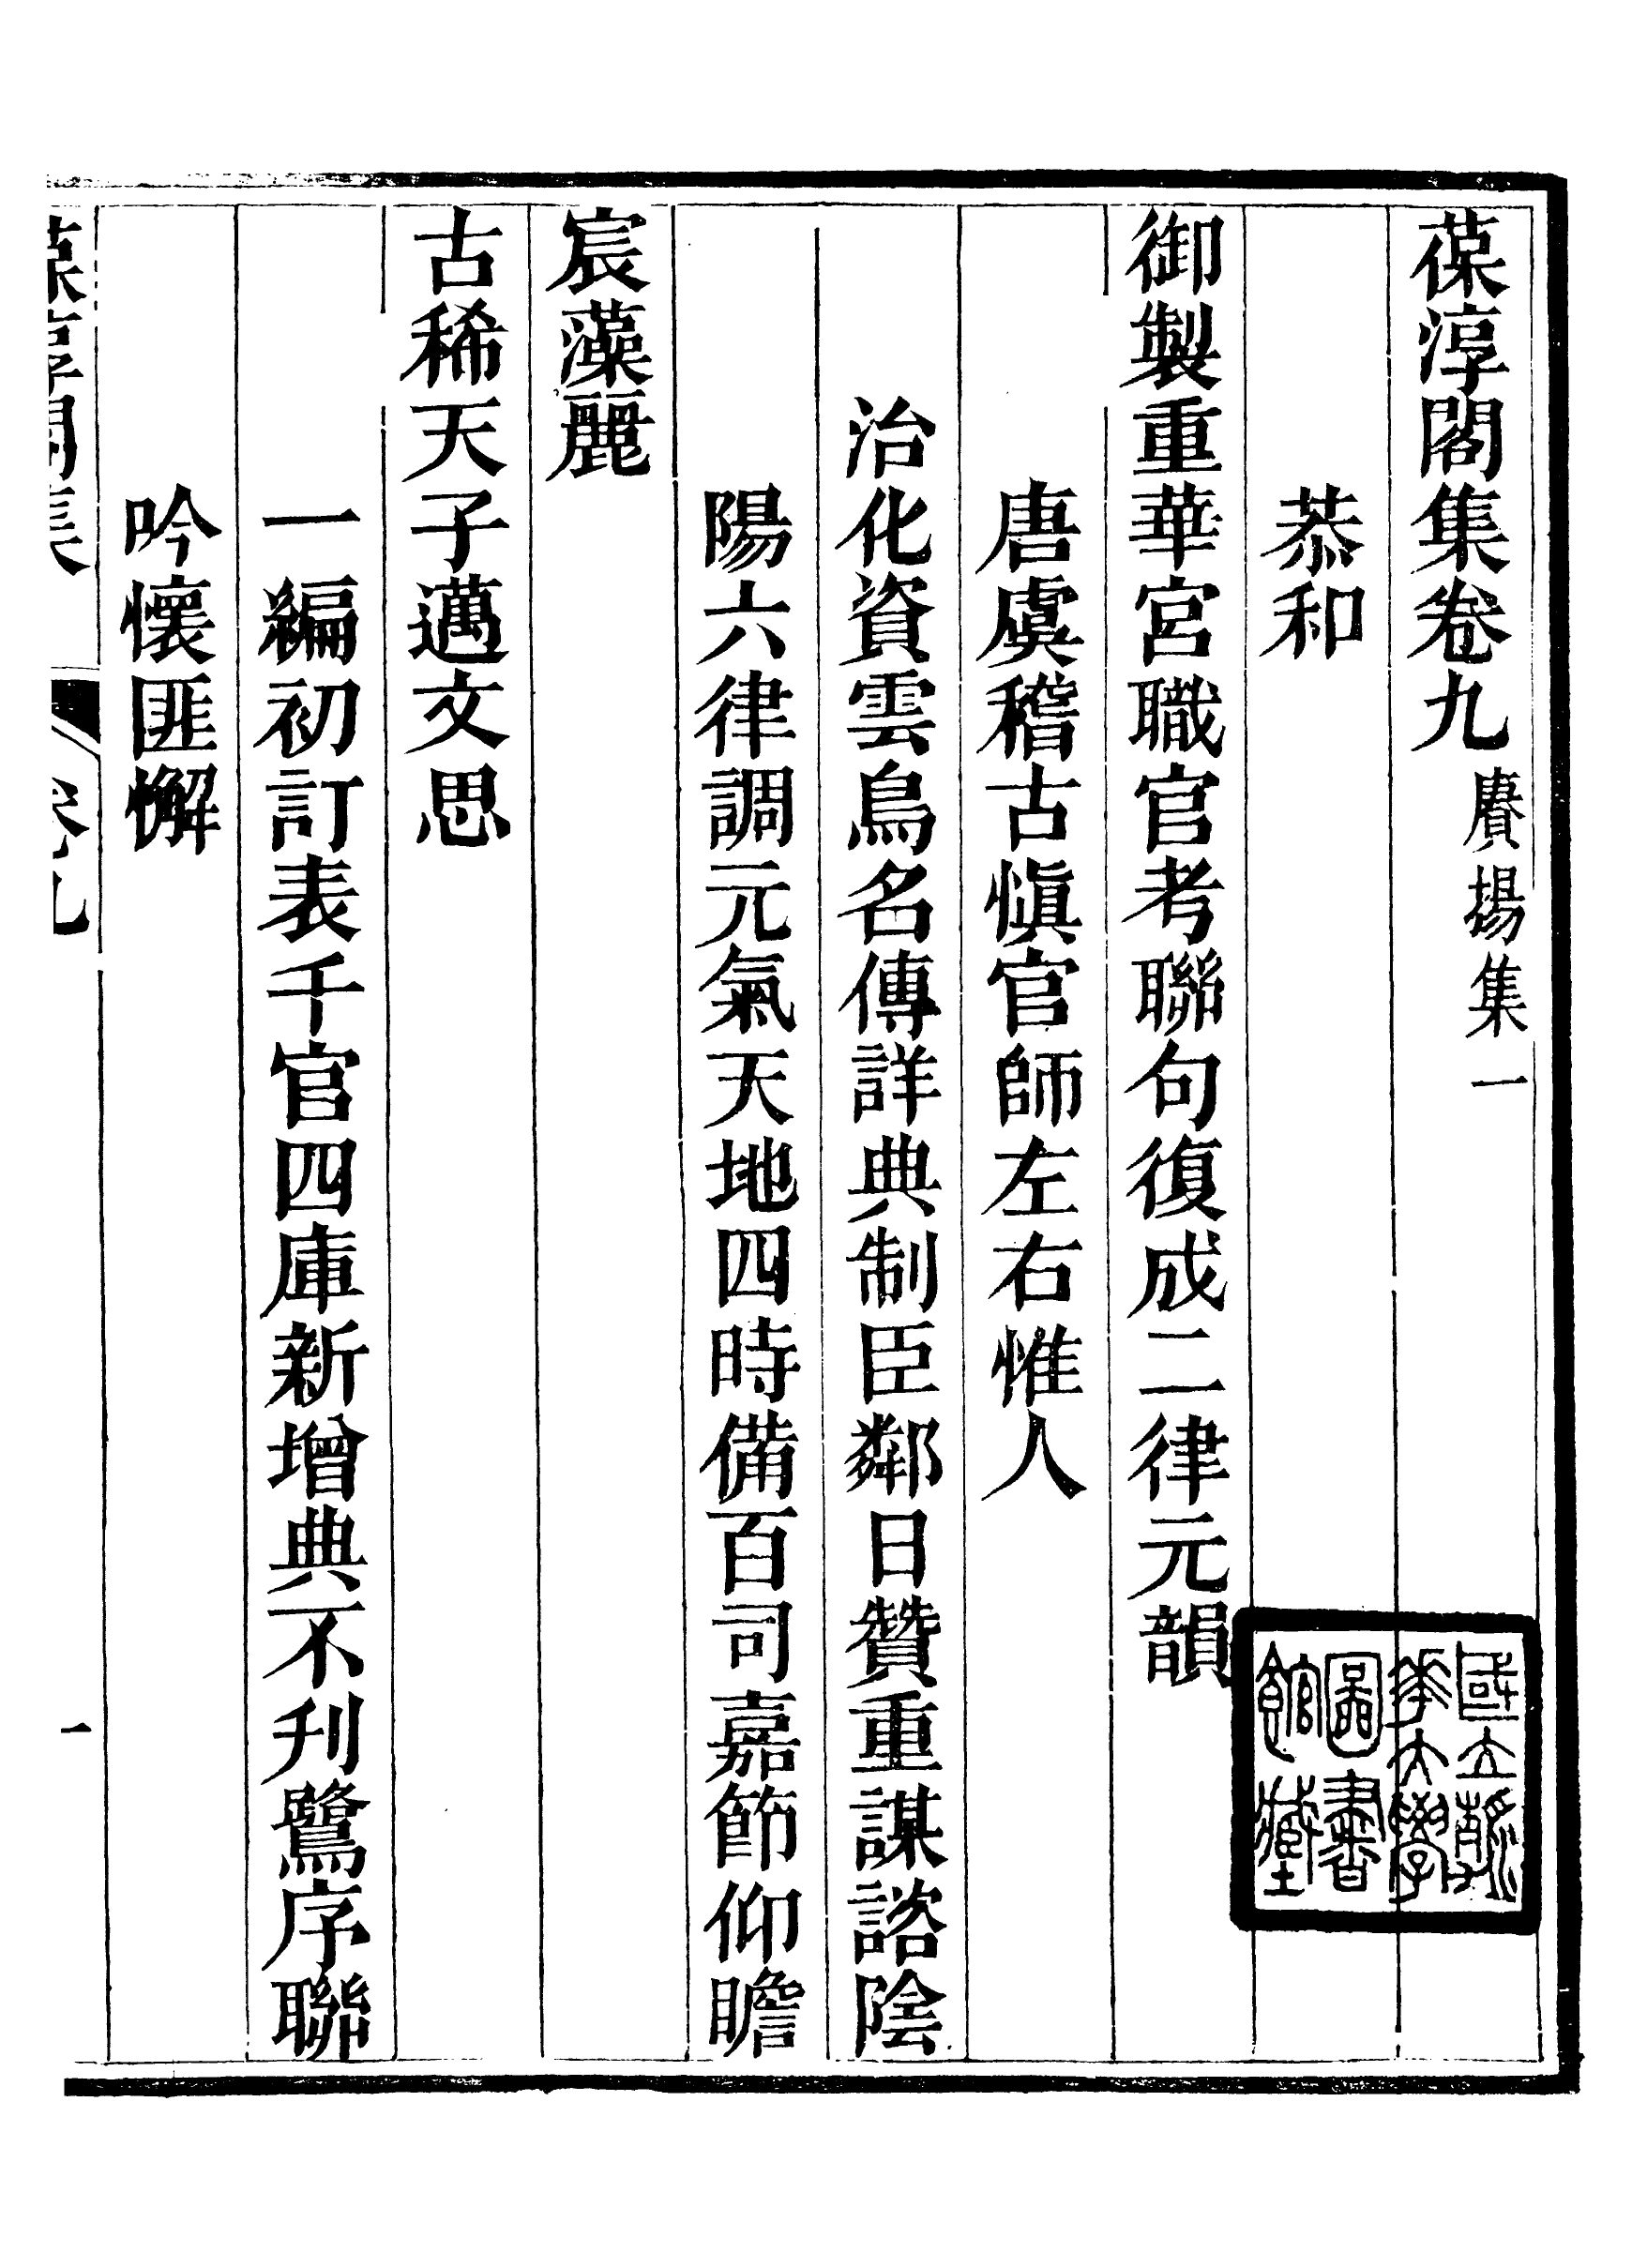 葆淳閣集卷九 賡揚集一
恭和
御製重華宮職官考聯句復成二律元韻
唐虞稽古慎官師左右惟人
治化資雲鳥名傳詳典制臣鄰日贊重謀諮陰
陽六律調元氣天地四時備百司嘉節仰瞻
宸藻麗
古稀天子邁文思
一編初訂表千官四庫新增典不刊鷺序聯
吟懷匪懈
葆淳閣集 卷九 一
國立清華大學圖書館藏